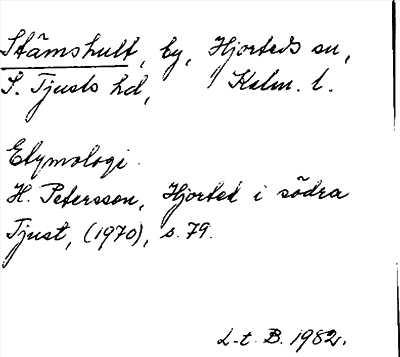 Stämshult, by, Hjorteds sn,
S. Tjusts hd, Kalm. l.
Etymologi.
H. Petersson, Hjorted i södra
Tjust, (1970), s. 79.
L-t B. 1982.